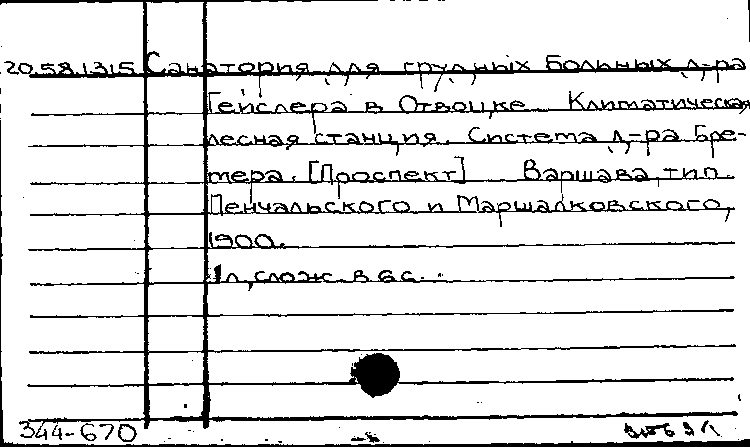 20.58.1315 Санатория для грудных больных д-ра
Гейслера в Отвоцке. Климатическая
лесная станция. Система д-ра Бре-
мера. [Проспект] Варшава, тип.
Пенчальского и Маршалковского,
1900.
1 л, слож. в 6 с.
344-670